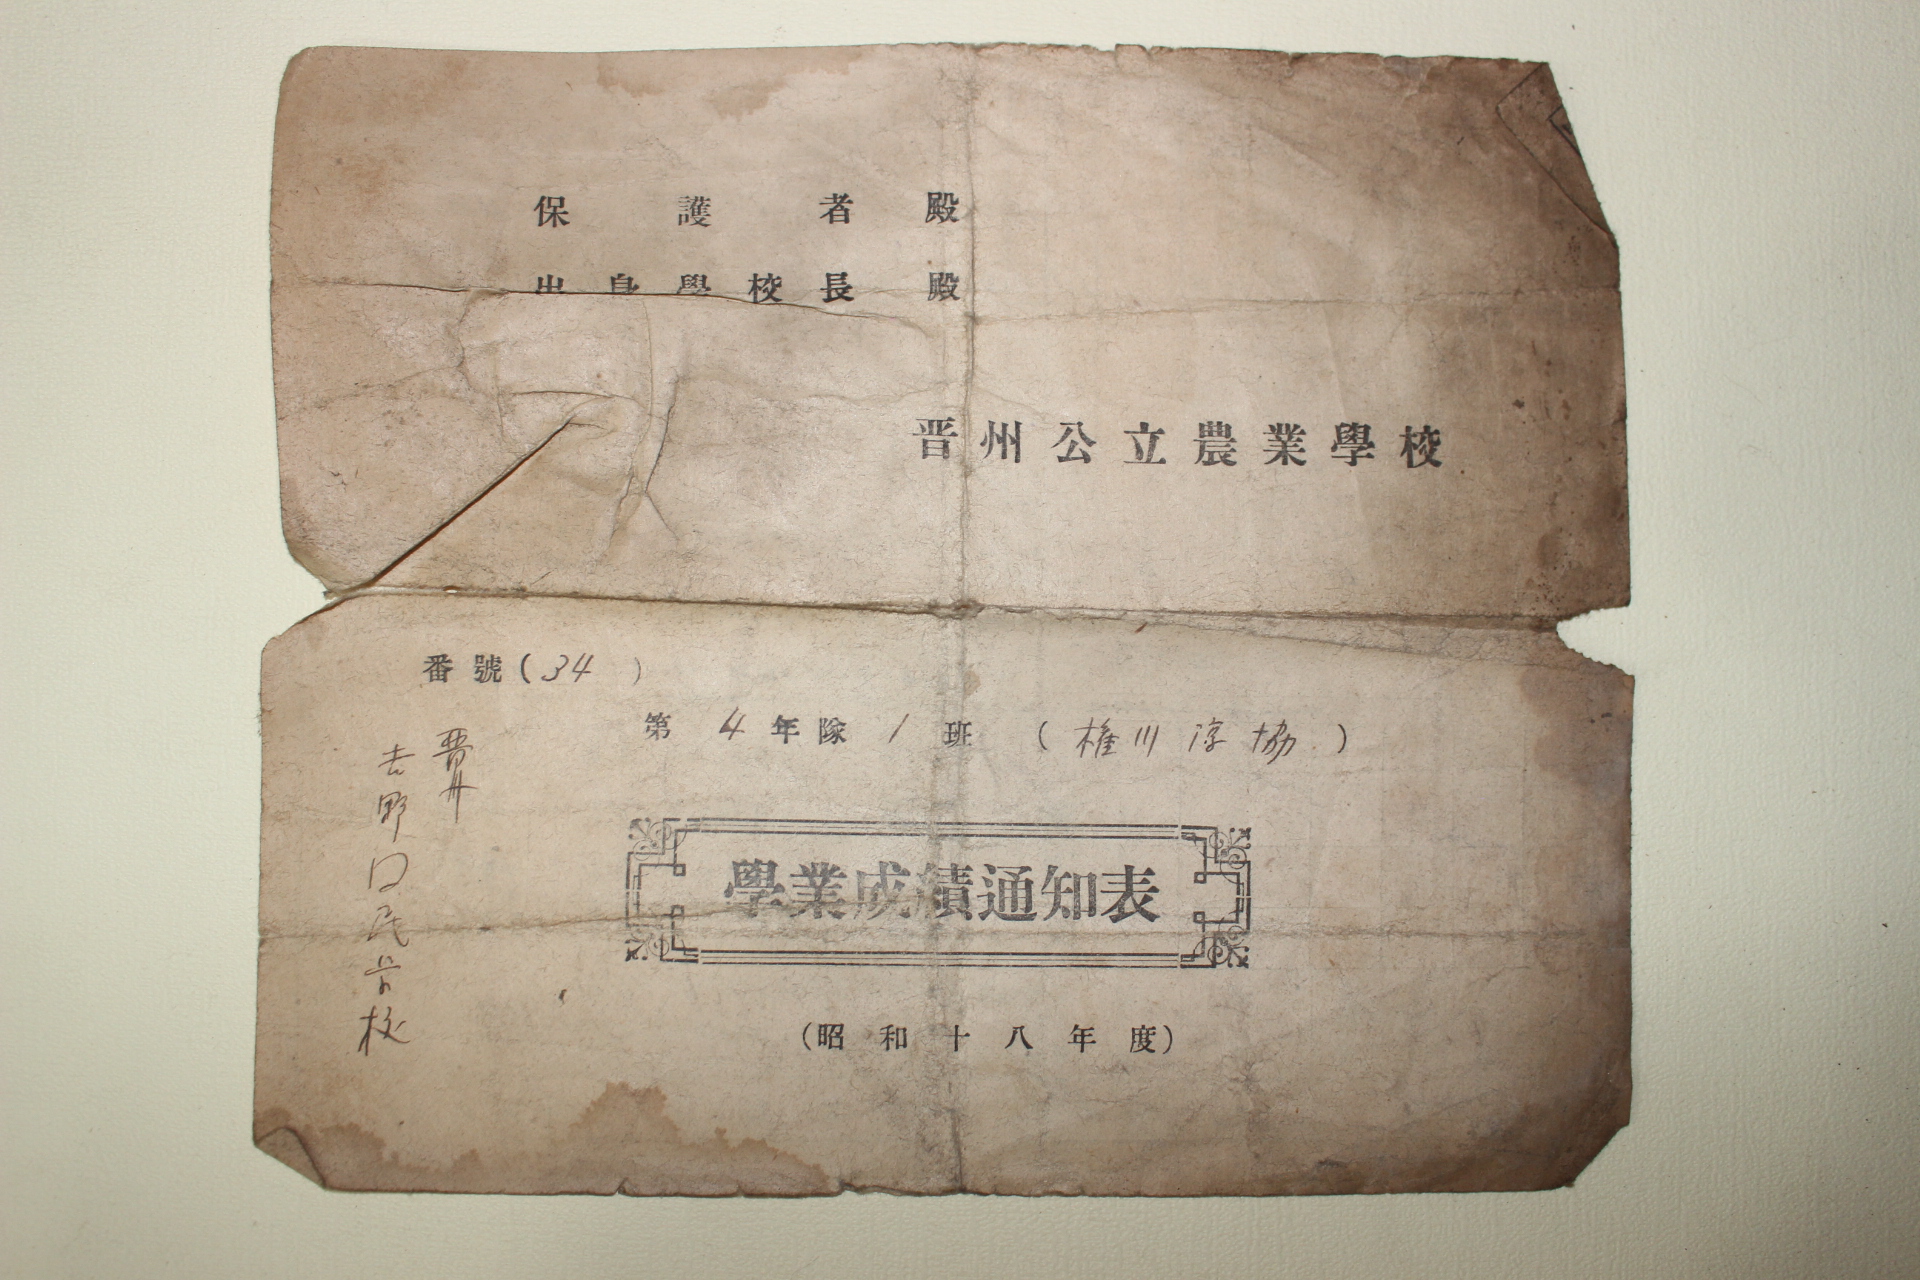 保護者殿
出身學校長殿
晋州公立農業學校
番號(34)
第4年隊1班(権川淳協)
晋州
吉野口民学校
學業成績通知表
(昭和十八年度)